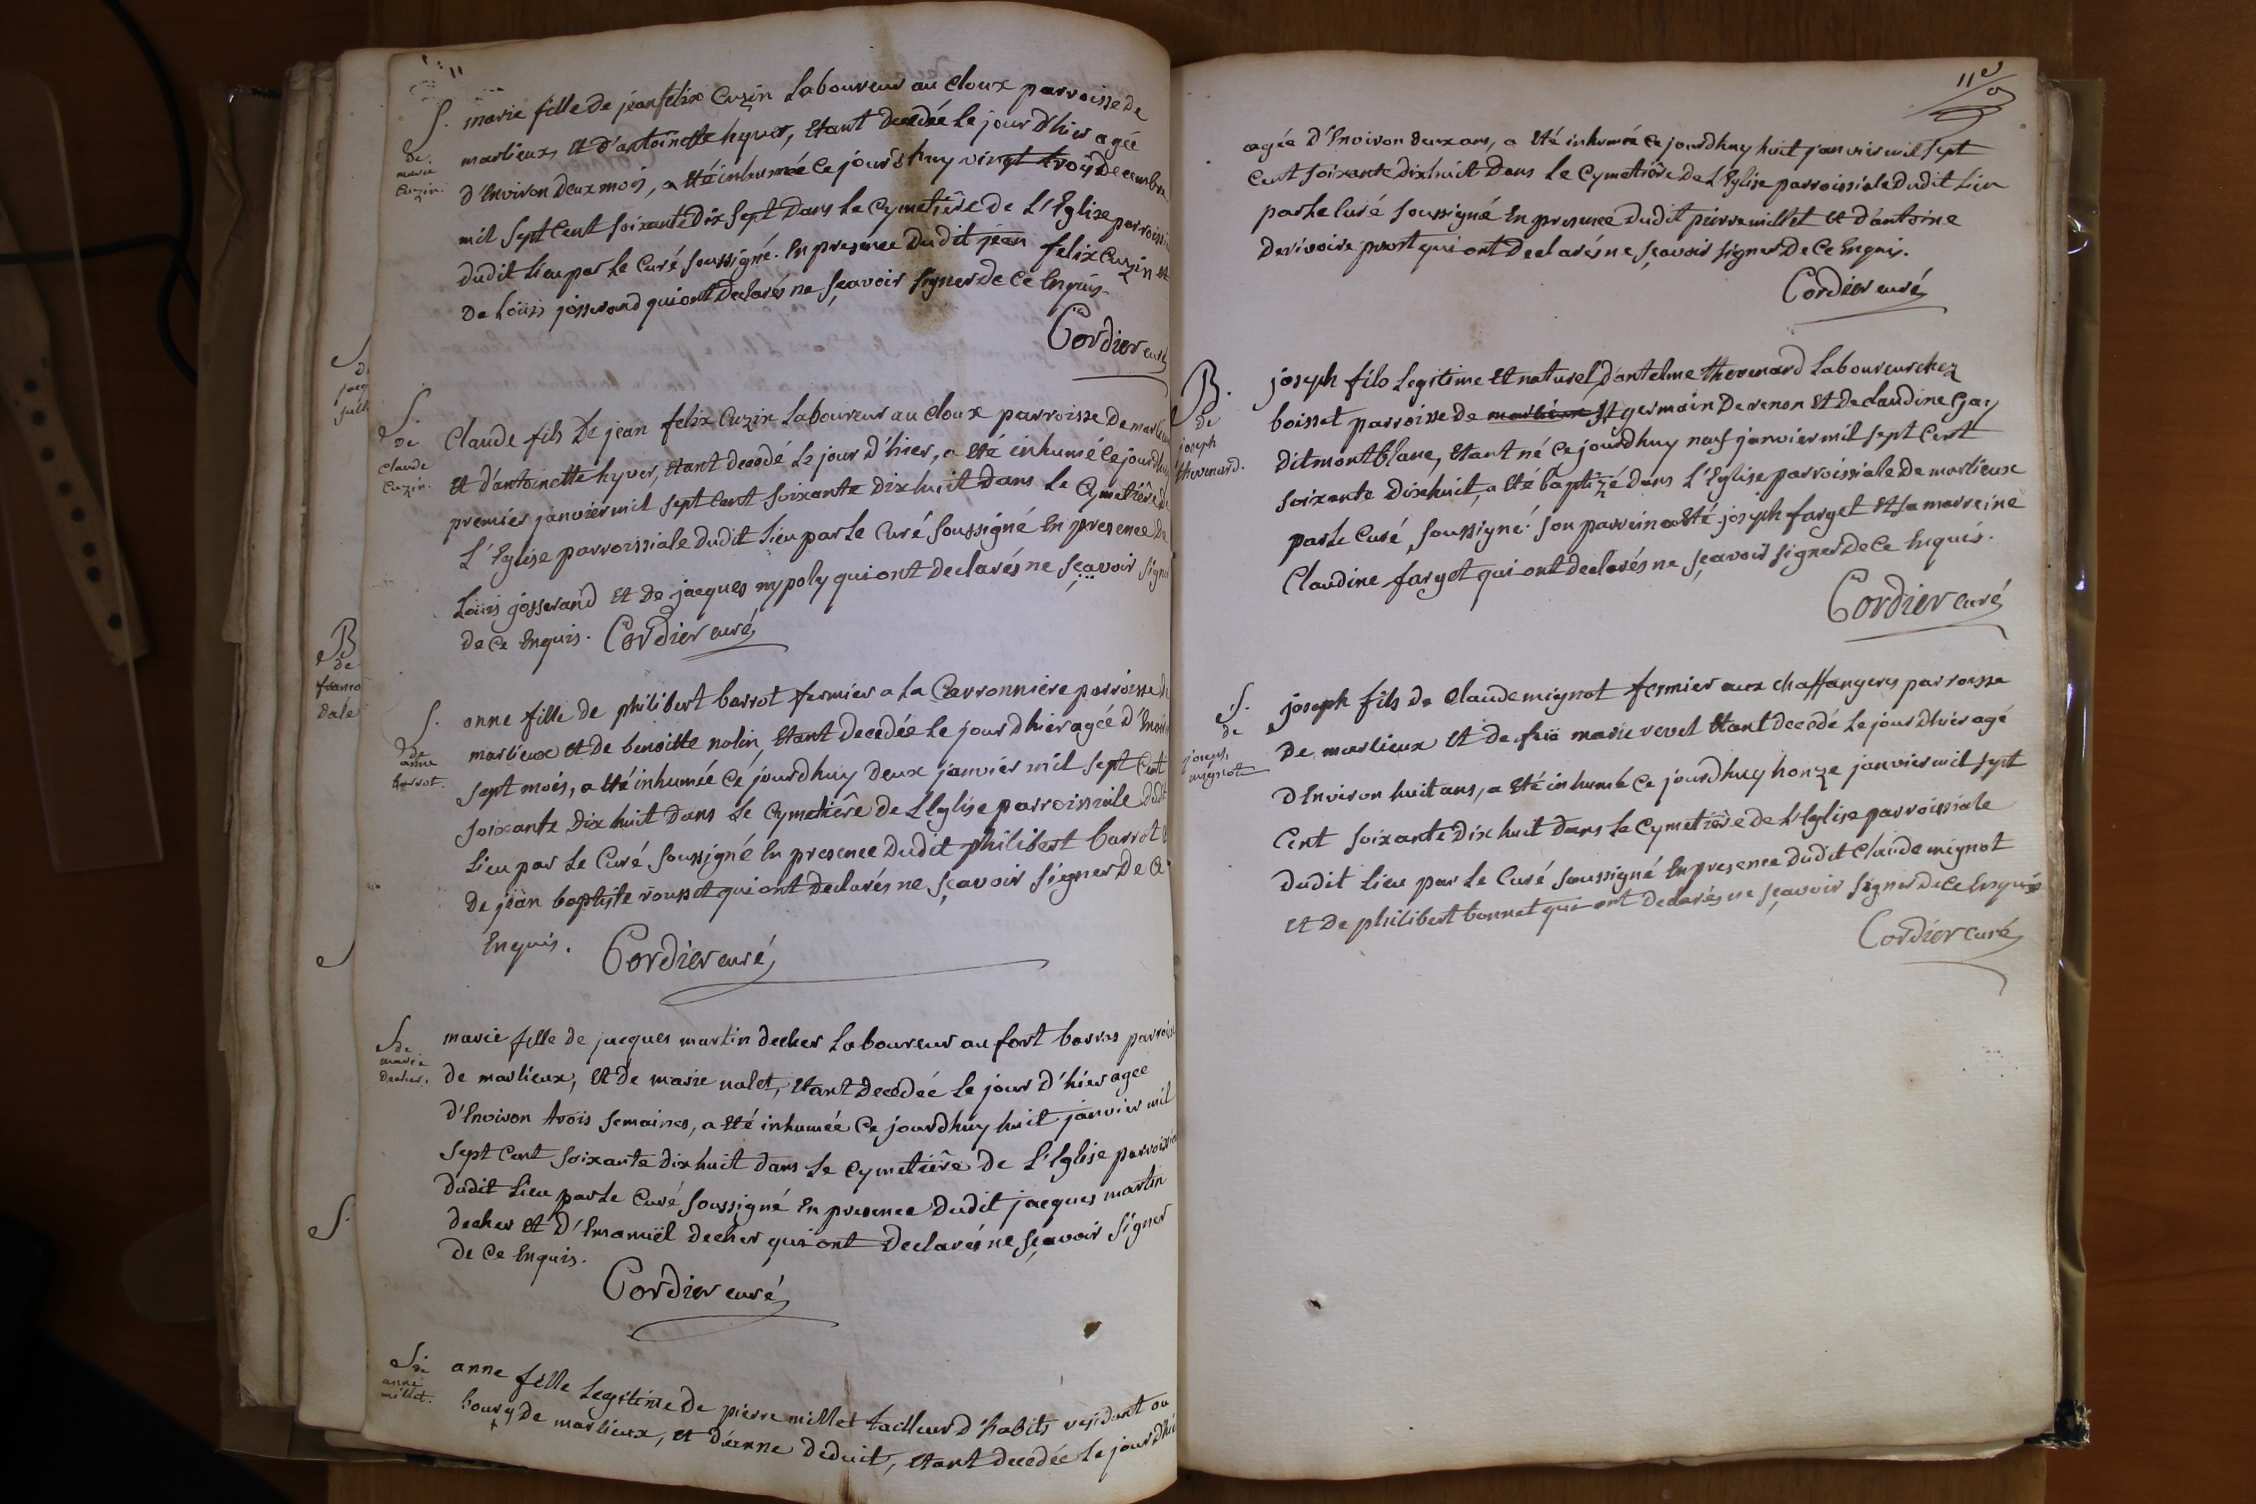 S.
de
marie
Cuzin.
marie fille de jean felix Cuzin Laboureur au cloux parroisse de
marlieux et d'antoinette hyver, Etant decedée Le jour d'hier agée
d'Environ deux mois, a Eté inhumée Ce jourd'huy vingt trois decembre
mil Sept Cent soixante dix Sept dans Le Cymetiére de L'Eglise parroissi
dudit Lieu par Le Curé soussigné. En presence dudit jean felix Cuzin et
de Loüis josserand qui ont declarés ne sçavoir signer de Ce Enquis.
Cordier curé
S.
de
Claude
Cuzin.
Claude fils de jean felix Cuzin Laboureur au cloux parroisse de marlieux
et d'antoinette hyver, Etant decedé Le jour d'hier, a Eté inhumé Ce jourdhuy
premier janvier mil sept Cent soixante dix huit dans Le Cymetiére de
L'Eglise parroissiale dudit Lieu par Le Curé soussigné En presence de
Loüis josserand et de jacques nypoly qui ont declarés ne sçavoir signer
de Ce Enquis. Cordier curé
S.
de
anne
barrot.
anne fille de philibert barrot fermier a La Carronniére parroisse de
marlieux et de benoitte nolin, Etant decedée Le jour dhier agée d'Environ
sept mois, a Eté inhumée Ce jourdhuy deux janvier mil sept Cent
soixante dix huit dans Le Cymetiére de L'Eglise parroissiale dudit
Lieu par Le Curé soussigné En presence dudit philibert barrot et
de jean baptiste rousset qui ont declarés ne sçavoir signer de Ce
Enquis. Cordier curé
S.
de
marie
decher.
marie fille de jacques martin decher Laboureur au fort barras parrois
de marlieux, et de marie nalet, Etant decedée Le jour d'hier agée
d'Environ trois semaines, a Eté inhumée Ce jourdhuy huit janvier mil
sept Cent soixante dix huit dans Le Cymetiére de L'Eglise parroissi
dudit Lieu par Le Curé soussigné En presence dudit jacques martin
decher et d'Emanuël decher qui ont declarés ne sçavoir signer
de Ce Enquis.
Cordier curé
S.
de
anne
millet.
anne fille Legitime de pierre millet tailleur d'habits residant au
bourg de marlieux, et d'anne deduit, Etant decedée Le jour dhier
11e
agée d'Environ deux ans, a Eté inhumée Ce jourdhuy huit janvier mil sept
Cent soixante dix huit dans Le Cymetiére de L'Eglise parroissiale dudit Lieu
par Le Curé soussigné En presence dudit pierre millet et d'antoine
derivoire prost qui ont declarés ne sçavoir signer de Ce Enquis.
Cordier curé
B.
de
joseph
thevenard.
joseph fils Legitime et naturel d'antelme thevenard Laboureur chez
boisset parroisse de marlieux st germain de renon et de claudine Gay
dit montblanc, Etant né Ce jourdhuy neuf janvier mil sept Cent
soixante dixhuit, a Eté baptizé dans L'Eglise parroissiale de marlieux
par Le Curé soussigné. son parrein a Eté joseph farget et sa marreine
Claudine farget qui ont declarés ne sçavoir signer de Ce Enquis.
Cordier curé
S.
de
joseph
mignot
joseph fils de Claude mignot fermier aux chaffangeres parroisse
de marlieux et de feüe marie revet Etant decedé Le jour d'hier agé
d'Environ huit ans, a Eté inhumé Ce jourdhuy honze janvier mil sept
Cent soixante dix huit dans Le Cymetiére de L'Eglise parroissiale
dudit Lieu par Le Curé soussigné En presence dudit Claude mignot
et de philibert bonnet qui ont declarés ne sçavoir signer de Ce Enquis
Cordier curé